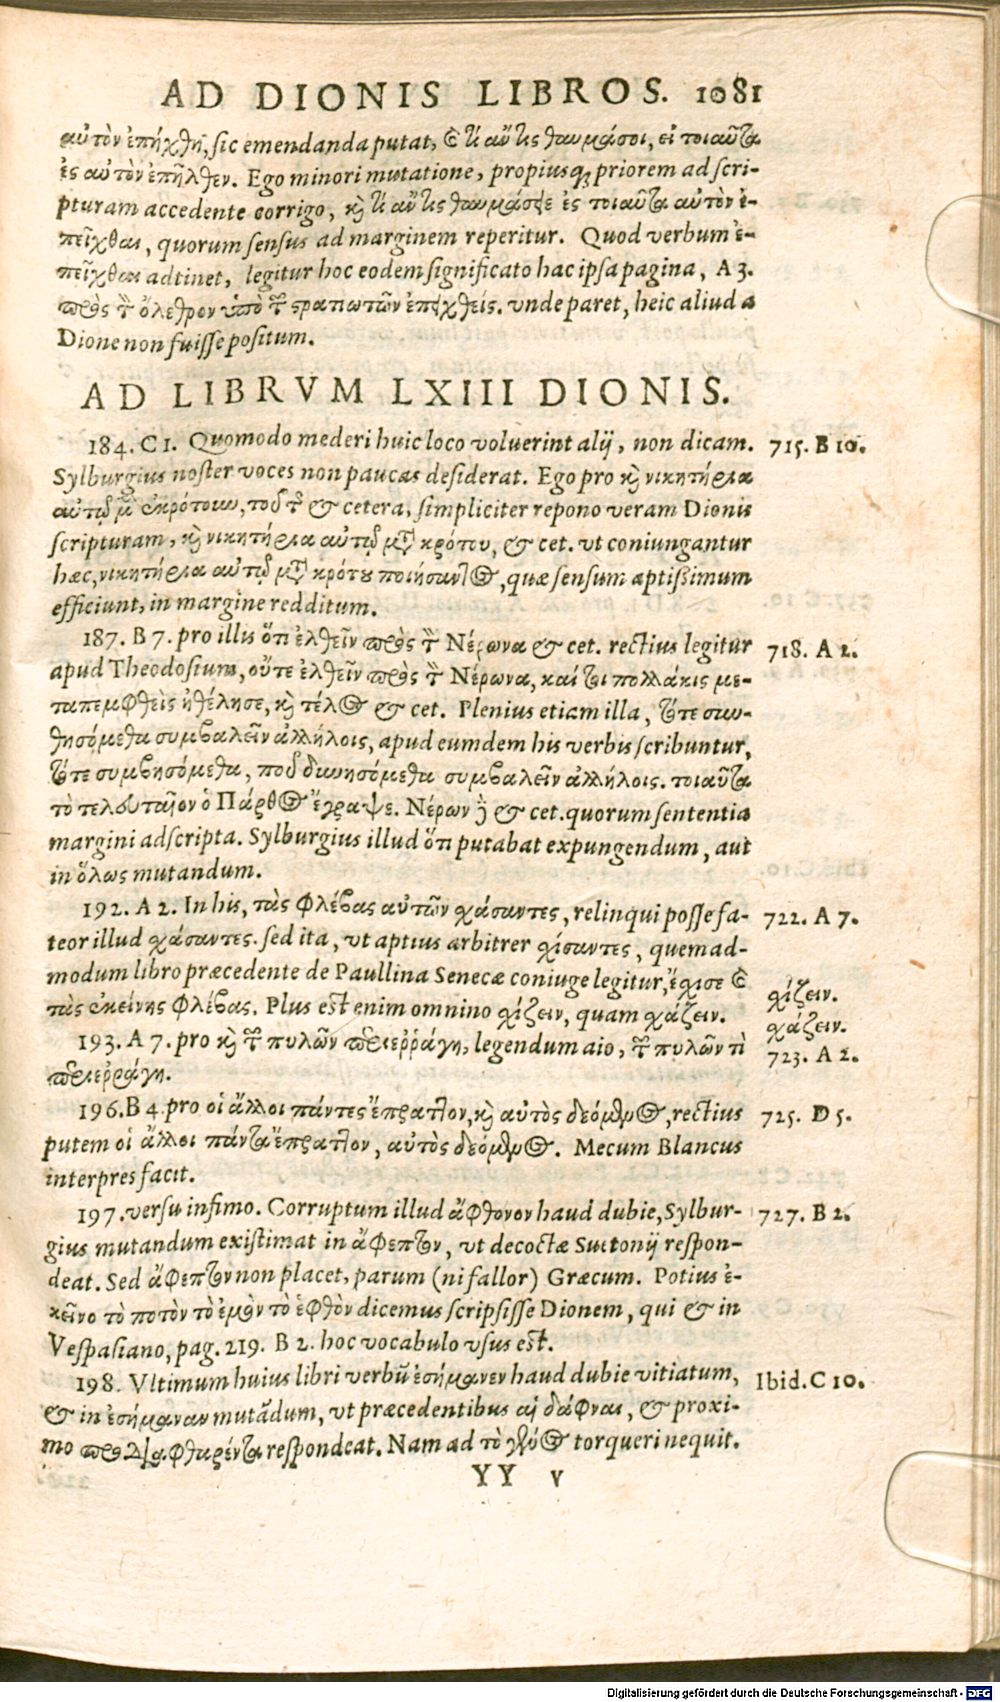 AD DIONIS LIBROS. 1081
αὐτὸν ἐπήχθη, sic emendanda putat, ϗ τί ἄν τις θαυμάσοι, εἰ τοιαῦτα
ἐς αὐτὸν ἐπῆλθεν. Ego minori mutatione, propiusq; priorem ad scri-
pturam accedente corrigo, ϗ τί ἄν τις θαυμάσειε ἐς τοιαῦτα αὐτὸν ἐ-
πεῖχθαι, quorum sensus ad marginem reperitur. Quod verbum ἐ-
πεῖχθαι adtinet, legitur hoc eodem significato hac ipsa pagina, A 3.
πρὸς τὸν ὄλεθρον ὑπὸ τῶν στρατιωτῶν ἐπειχθείς. vnde paret, heic aliud a
Dione non fuisse positum.
AD LIBRVM LXIII DIONIS.
184. C 1. Quomodo mederi huic loco voluerint alij, non dicam. 715. B 10.
Sylburgius noster voces non paucas desiderat. Ego pro ϗ νικητήρια
αὐτῷ μ ἐκρότουν, τοῦ τε & cetera, simpliciter repono veram Dionis
scripturam, ϗ νικητήρια αὐτῷ μετὰ κρότου, & cet. vt coniungantur
hæc, νικητήρια αὐτῷ μετὰ κρότου ποιήσαντος, quæ sensum aptissimum
efficiunt, in margine redditum.
187. B 7. pro illis ὅτι ἐλθεῖν πρὸς τὸν Νέρωνα & cet. rectius legitur 718. A 2.
apud Theodosium, οὔτε ἐλθεῖν πρὸς τὸν Νέρωνα, καί τοι πολλάκις με-
ταπεμφθεὶς ἠθέλησε, ϗ τέλος & cet. Plenius etiam illa, ὥστε συν-
θησόμεθα συμβαλεῖν ἀλλήλοις, apud eumdem his verbis scribuntur,
συμβησόμεθα, ποῦ δυνησόμεθα συμβαλεῖν ἀλλήλοις. τοιαῦτα
τὸ τελευταῖον ὁ Πάρθος ἔγραψε. Νέρων δὲ & cet. quorum sententia
margini adscripta. Sylburgius illud ὅτι putabat expungendum, aut
in ὅλως mutandum.
192. A 2. In his, τὰς φλέβας αὐτῶν χάσαντες, relinqui posse fa- 722. A 7.
teor illud χάσαντες. sed ita, vt aptius arbitrer χίσαντες, quemad-
modum libro præcedente de Paullina Senecæ coniuge legitur, ἔσχισε ϗ
τὰς ἐκείνης φλέβας. Plus est enim omnino σχίζειν, quam σχάζειν.
σχίζειν.
σχάζειν.
193. A 7. pro ϗ τῶν πυλῶν περιερράγη, legendum aio, τῶν πυλῶν τι 723. A 2.
περιερράγη.
196. B 4. pro οἱ ἄλλοι πάντες ἔπραττον, ϗ αὐτὸς δεόμενος, rectius 725. D 5.
putem οἱ ἄλλοι πάντα ἔπραττον, αὐτὸς δεόμενος. Mecum Blancus
interpres facit.
197. versu infimo. Corruptum illud ἄφθονον haud dubie, Sylbur- 727. B 2.
gius mutandum existimat in ἄφεπτον, vt decoctæ Suetonij respon-
deat. Sed ἄφεπτον non placet, parum (ni fallor) Græcum. Potius ἐ-
κεῖνο τὸ ποτὸν τὸ ἐμὸν τὸ ἑφθὸν dicemus scripsisse Dionem, qui & in
Vespasiano, pag. 219. B 2. hoc vocabulo vsus est.
198. Vltimum huius libri verbũ ἐσήμανεν haud dubie vitiatum, Ibid. C 10.
& in ἐσήμαναν mutãdum, vt præcedentibus αἱ δάφναι, & proxi-
mo προδιαφθαρέντα respondeat. Nam ad τὸ γένος torqueri nequit.
YY v
Digitalisierung gefördert durch die Deutsche Forschungsgemeinschaft - DFG